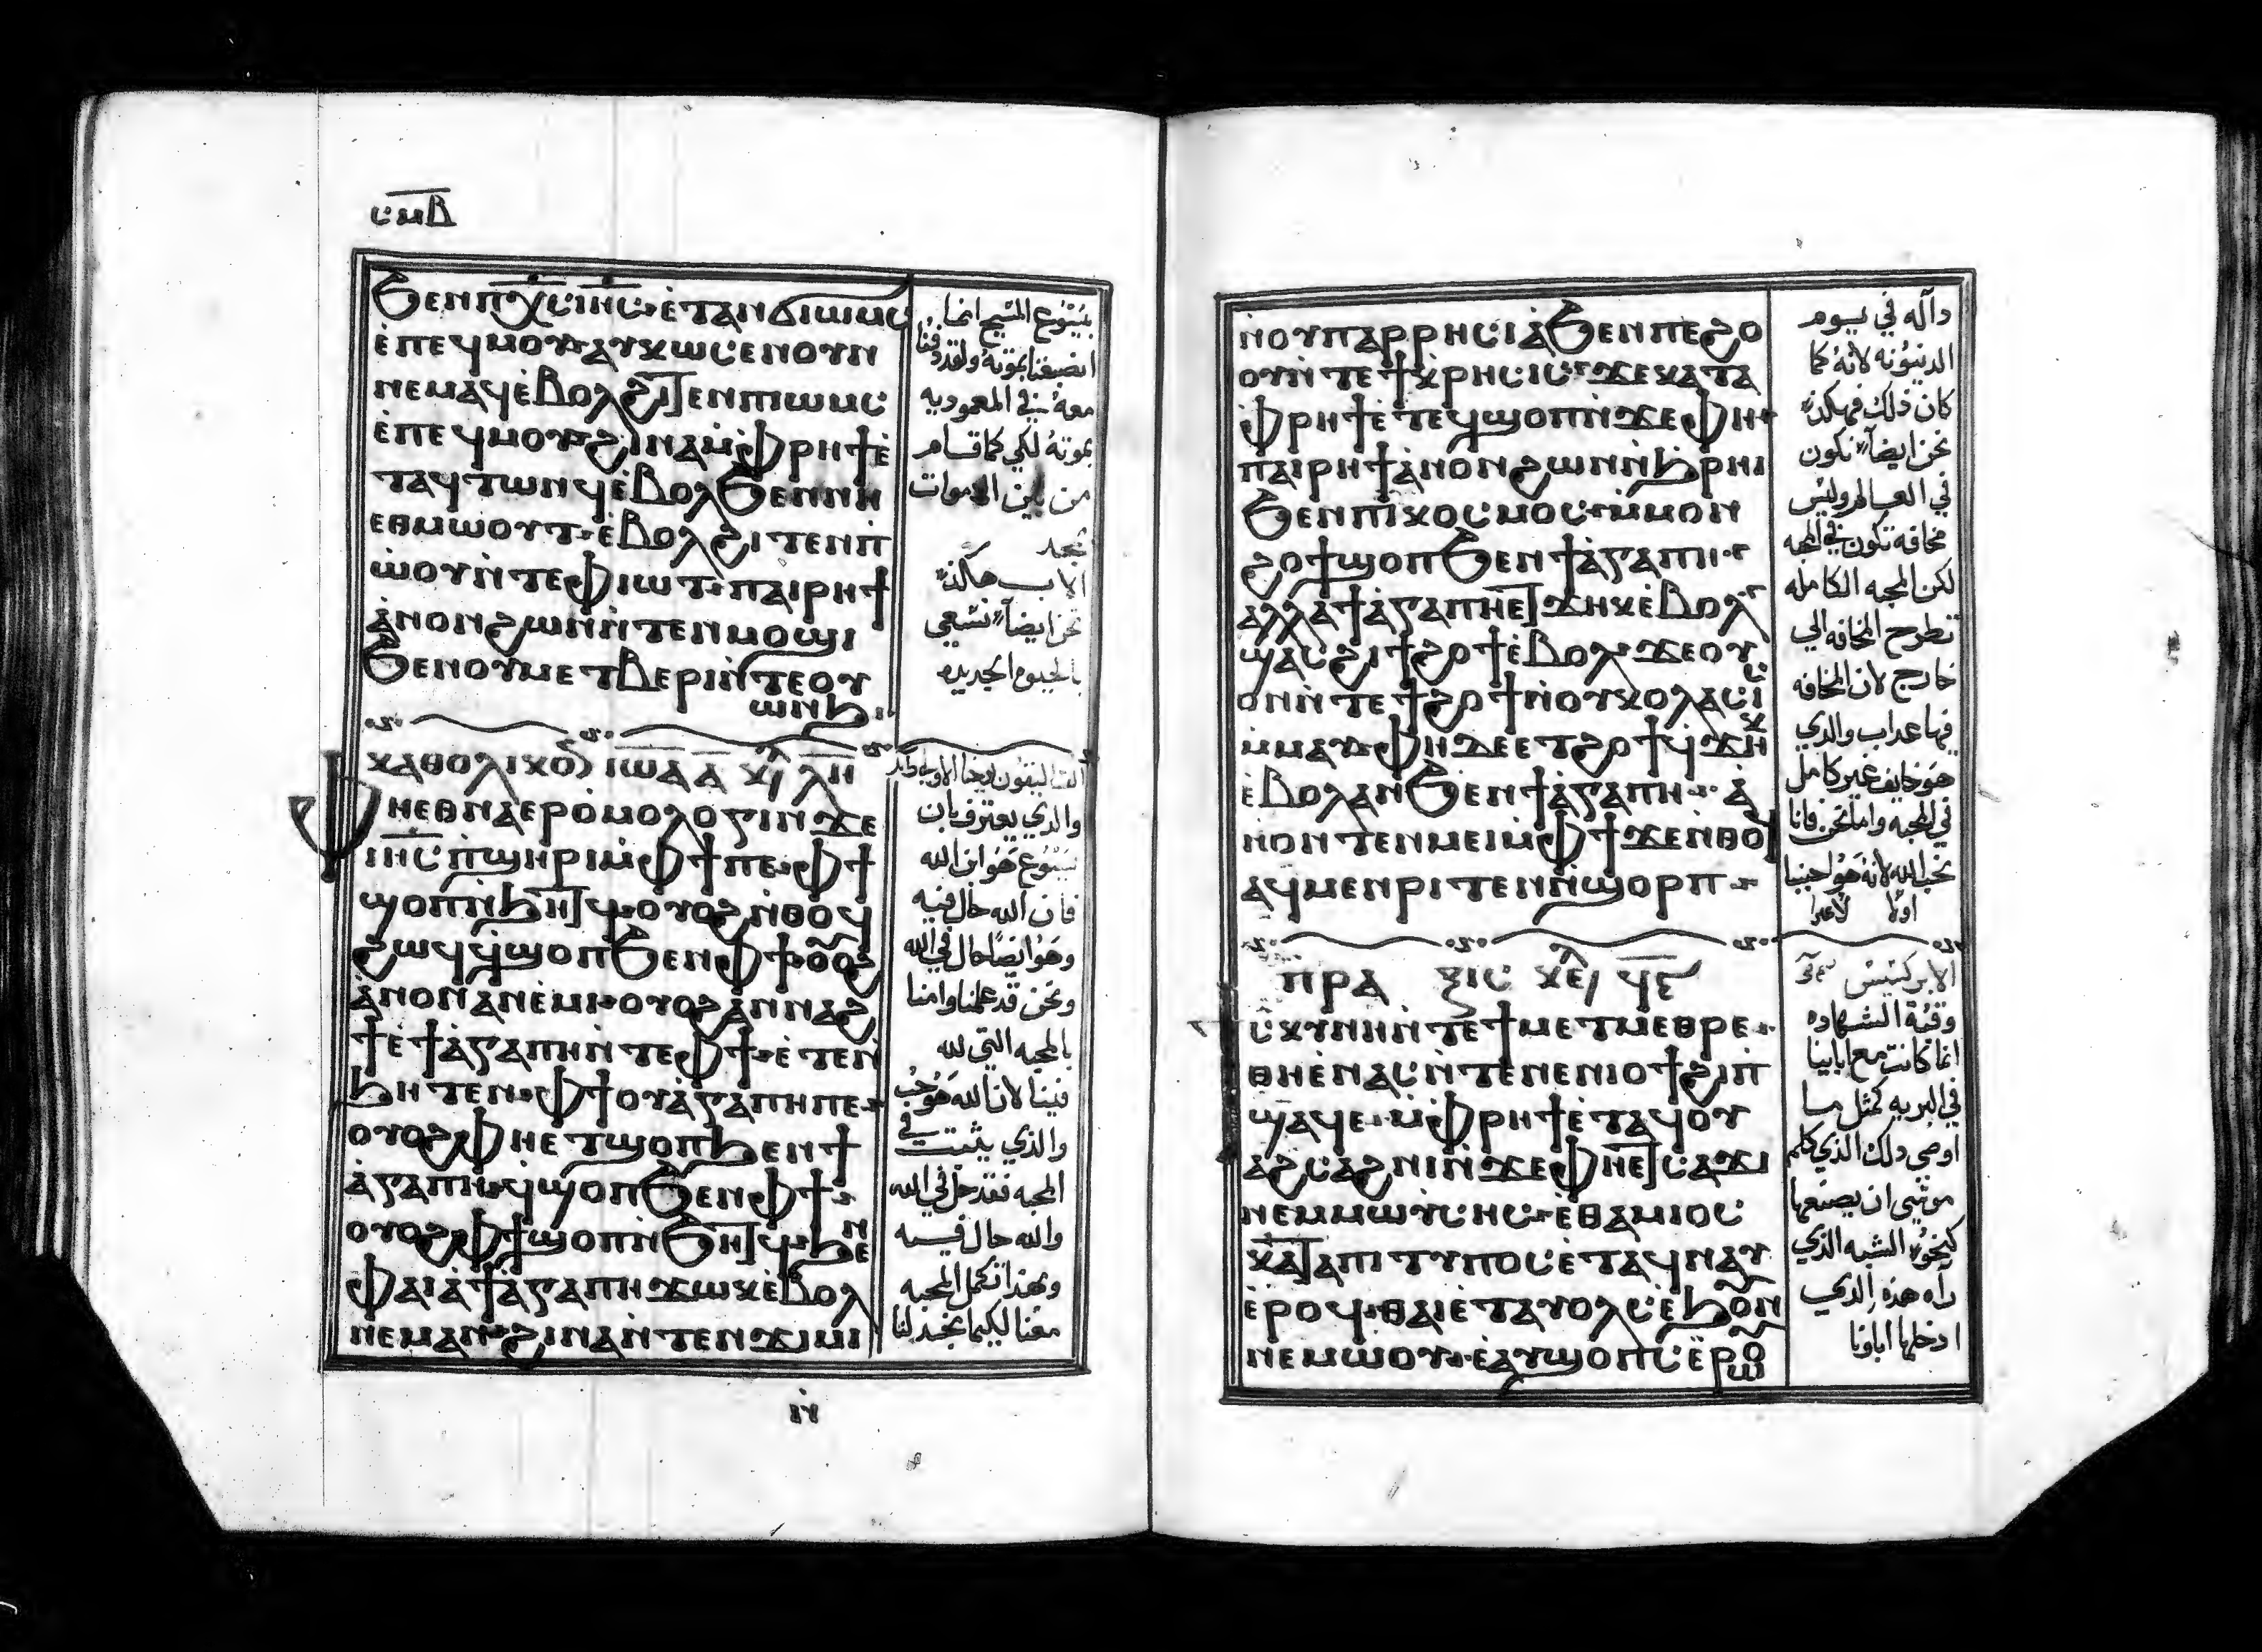 ⲥⲙⲃ
ϧⲉⲛⲡⲭⲥⲓⲏⲥ·ⲉ̀ⲧⲁⲛϭⲓⲱⲙⲥ
ⲉ̀ⲡⲉϥⲙⲟⲩ·ⲁⲩⲭⲱⲥⲉⲛⲟⲩⲛ
ⲛⲉⲙⲁϥⲉ̀ⲃⲟⲗϩⲓⲧⲉⲛⲡⲓⲱⲙⲥ
ⲉ̀ⲡⲉϥⲙⲟⲩ·ϩⲓⲛⲁⲙ̀ⲫⲣⲏϯⲉ̀
ⲧⲁϥⲧⲱⲛϥⲉ̀ⲃⲟⲗϧⲉⲛⲛⲏ
ⲉⲑⲙⲱⲟⲩⲧ·ⲉ̀ⲃⲟⲗϩⲓⲧⲉⲛⲡ̀
ⲱ̀ⲟⲩⲛ̀ⲧⲉⲫⲓⲱⲧ·ⲡⲁⲓⲣⲏϯ
ⲁ̀ⲛⲟⲛϩⲱⲛⲛ̀ⲧⲉⲛⲙⲟϣⲓ
ϧⲉⲛⲟⲩⲙⲉⲧⲃⲉⲣⲓⲛ̀ⲧⲉⲟⲩ
ⲱⲛϧ·
بيَسُوع المسيح انما
انصبغنا بموته ولقد دفنا
معهُ في المعموديه
بموته لكي كما قام
من بين الاموات
بمجد
الاب هكذا
نحن ايضاً نسعي
بالحيوه الجديده
ⲕⲁⲑⲟⲗⲓⲕⲟⲛ ⲓⲱⲁ ⲁ ⲕⲗ ⲗⲏ
ⲫⲏⲉⲑⲛⲁⲉⲣⲟ̀ⲙⲟⲗⲟⲅⲓⲛϫⲉ
ⲓⲏⲥⲡ̀ϣⲏⲣⲓⲙ̀ⲫϯⲡⲉ·ⲫϯ
ϣⲟⲡⲛ̀ϧⲏⲧϥ·ⲟⲩⲟϩⲛ̀ⲑⲟϥ
ϩⲱϥϥ̀ϣⲟⲡϧⲉⲛⲫϯ·ⲟⲩⲟϩ
ⲁ̀ⲛⲟⲛⲁⲛⲉ̀ⲙⲓ·ⲟⲩⲟϩⲁⲛⲛⲁϩ
ϯⲉ̀ϯⲁ̀ⲅⲁⲡⲏⲛ̀ⲧⲉⲫϯ·ⲉ̀ⲧⲉⲛ̀
ϧⲏⲧⲉⲛ·ⲫϯⲟⲩⲁ̀ⲅⲁⲡⲏⲡⲉ·
ⲟⲩⲟϩⲫⲏⲉⲧϣⲟⲡϧⲉⲛϯ
ⲁ̀ⲅⲁⲡⲏ·ϥ̀ϣⲟⲡϧⲉⲛⲫϯ·
ⲟⲩⲟϩⲫϯϣⲟⲡⲛ̀ϧⲏⲧϥ·ϧⲉⲛ
ⲫⲁⲓⲁ̀ϯⲁ̀ⲅⲁⲡⲏϫⲱⲕⲉ̀ⲃⲟⲗ
ⲛⲉⲙⲁⲛ·ϩⲓⲛⲁⲛ̀ⲧⲉⲛϫⲓⲙⲓ
والذي يعترف بان
يَسُوع هَوُ ابن الله
فان الله حال فيه
وهَوُ ايضًا حال في الله
ونحن قد علمنا وامنا
بالمحبه التي لله
فينا لان الله هَوُ حُب
والذي يثبت في
المحبه فقد حل في الله
والله حال فيه
وبهذا تكمل المحبه
معنا لكيما نجد لنا
ⲛ̀
ⲛ̀ⲟⲩⲡⲁⲣⲣⲏⲥⲓⲁ̀ϧⲉⲛⲡⲉϩⲟ
ⲟⲩⲛ̀ⲧⲉϯⲕ̀ⲣⲏⲥⲓⲥ·ϫⲉⲕⲁⲧⲁ
ⲫⲣⲏϯⲉ̀ⲧⲉϥϣⲟⲡⲛ̀ϫⲉⲫⲏ·
ⲡⲁⲓⲣⲏϯⲁ̀ⲛⲟⲛϩⲱⲛⲛ̀ϧⲣⲏⲓ
ϧⲉⲛⲡⲓⲕⲟⲥⲙⲟⲥ·ⲙ̀ⲙⲟⲛ
ϩⲟϯϣⲟⲡϧⲉⲛϯⲁ̀ⲅⲁⲡⲏ·
ⲁⲗⲗⲁϯⲁ̀ⲅⲁⲡⲏⲉⲧϫⲏⲕⲉ̀ⲃⲟⲗ
ϣⲁⲥϩⲓϯϩⲟϯⲉ̀ⲃⲟⲗ·ϫⲉⲟⲩ
ⲟⲛⲛ̀ⲧⲉϯϩⲟϯⲛ̀ⲟⲩⲕⲟⲗⲁⲥⲓⲥ
ⲙ̀ⲙⲁⲩ·ⲫⲏⲇⲉⲉⲧϩⲟϯϥ̀ϫⲏⲕ
ⲉ̀ⲃⲟⲗⲁⲛϧⲉⲛϯⲁ̀ⲅⲁⲡⲏ··ⲁ̀
ⲛⲟⲛⲧⲉⲛⲙⲉⲓⲙ̀ⲫϯϫⲉⲛⲑⲟϥ
ⲁϥⲙⲉⲛⲣⲓⲧⲉⲛⲛ̀ϣⲟⲣⲡ·
دآله في يوم
الدينونه لانهُ كما
كان ذلك فهكذا
نحن ايضاً نكون
في العالم وليس
مخافه تكون في المحبه
لكن المحبه الكامله
تطرح المخافه الي
خارج لان المخافه
فيها عداب والدي
هَوُ خايف غير كامل
في المحبه واما نحن فانا
نحب الله لانهُ هَوُ احبنا
اولًا
ⲡⲣⲁ ⲝⲓⲥ ⲕⲉ
ⲥ̀ⲕⲩⲛⲏⲛ̀ⲧⲉϯⲙⲉⲧⲙⲉⲑⲣⲉ·
ⲑⲏⲉ̀ⲛⲁⲥⲛ̀ⲧⲉⲛⲉⲛⲓⲟϯϩⲓⲡ̀
ϣⲁϥⲉ·ⲙ̀ⲫⲣⲏϯⲉ̀ⲧⲁϥⲟⲩ
ⲁϩⲥⲁϩⲛⲓⲛ̀ϫⲉⲫⲏⲉⲧⲥⲁϫⲓ
ⲛⲉⲙⲙⲱⲩⲥⲏⲥ·ⲉ̀ⲑⲁⲙⲓⲟⲥ
ⲕⲁⲧⲁⲡⲓⲧⲩⲡⲟⲥⲉ̀ⲧⲁϥⲛⲁⲩ
ⲉ̀ⲣⲟϥ·ⲑⲁⲓⲉ̀ⲧⲁⲩⲟⲗⲥⲉ̀ϧⲟⲩⲛ
ⲛⲉⲙⲱⲟⲩ·ⲉ̀ⲁⲩϣⲟⲡⲥⲉ̀ⲣⲱⲟⲩ
الابركسيس
وقبة الشهاده
انما كانت مع ابائنا
في البريه كمثل ما
اوصي دلك الذي كلم
موسي ان يصنعها
كنحو الشبه الذي
راه هذه الدي
ادخلها اباونا